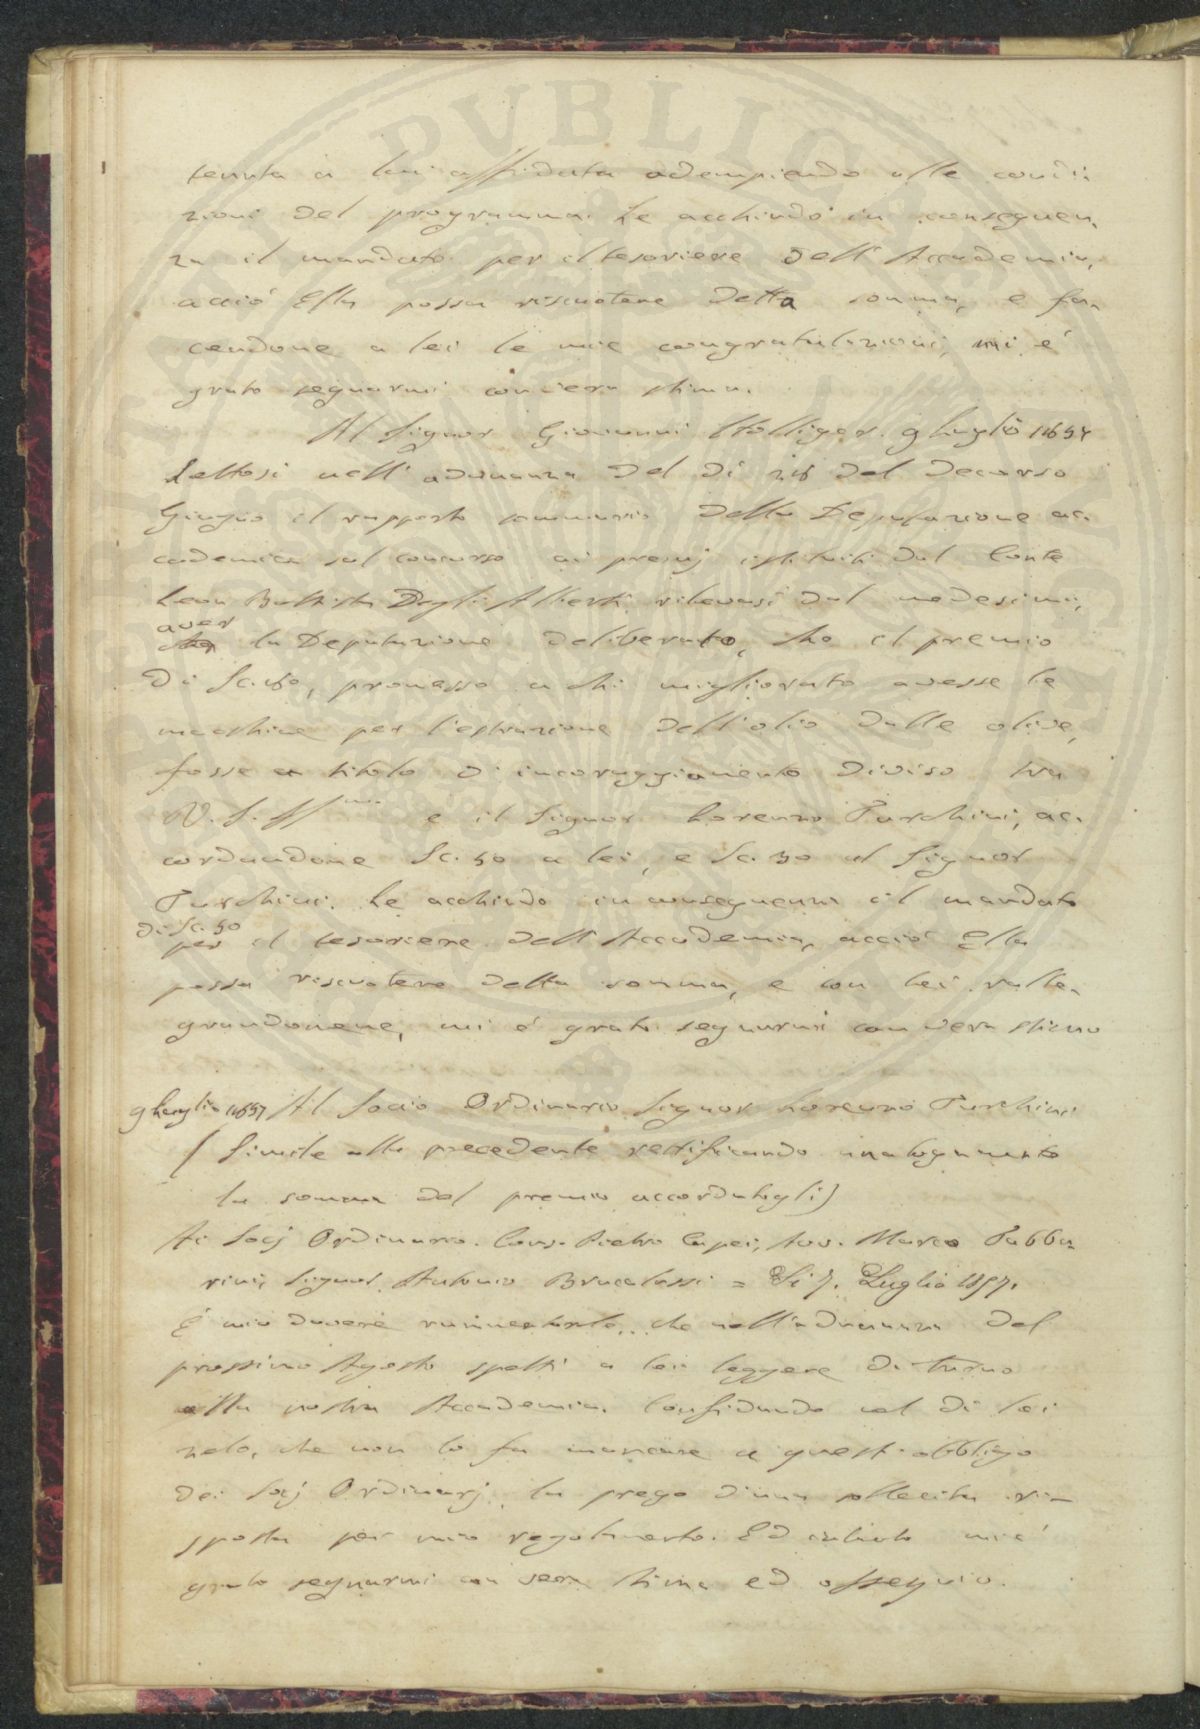 PVBLICA
tenuta a lui affidata adempiendo alle condi:
zioni del programma. Le acchiudo in conseguen,
za il mandato per il tesoriere dell'Accademia,
acciò Ella possa riscuotere detta somma, e fa,
cendone a lei le mie congratulazioni, mi é
grato segnarmi con vera stima.
Al Signor Giovanni 9 Luglio 1857
Lettosi nell'adunanza del dí 28 del decorso
Giugno il rapporto sommario della Deputazione ac,
cademica sul concorso ai premj istituiti dal Conte
Leon Battista Degli Alberti, rilevasi dal medesimo,
aver
la Deputazione deliberato, che il premio
di Sc. 80, promesso a chi migliorato avesse le
macchine per l'estrazione dell'olio dalle olive,
fosse a titolo di incoraggiamento diviso tra
V. S. Ill.ma e il Signor Lorenzo Turchini, ac,
cordandone Sc. 50 a lei, e Sc. 30 al Signor
Turchini. Le acchiudo in conseguenza il mandato
di Sc. 50
per il tesoriere dell'Accademia, acciò Ella
possa riscuotere detta somma, e con lei ralle,
grandomene, mi é grato segnarmi con vera stima
9 Luglio 1857 Al Socio Ordinario Signor Lorenzo Turchini
( Simile alla precedente rettificando analogamente
la somma del premio accordatogli)
Ai Socj Ordinarj. Cons. Pietro Capei, Avv. Marco Tabba,
rini, Signor Antonio Brucalassi = Li 7. Luglio 1857.
È mio dovere rammentarle, che nell'adunanza del
prossimo Agosto spetti a lei leggere di turno
alla nostra Accademia. Confidando nel di lei
zelo, che non lo fa mancare a quest'obbligo
dei Socj Ordinarj, la prego d'una sollecita ri,
sposta per mio regolamento. Ed intanto mi é
grato segnarmi con vera stima ed ossequio.